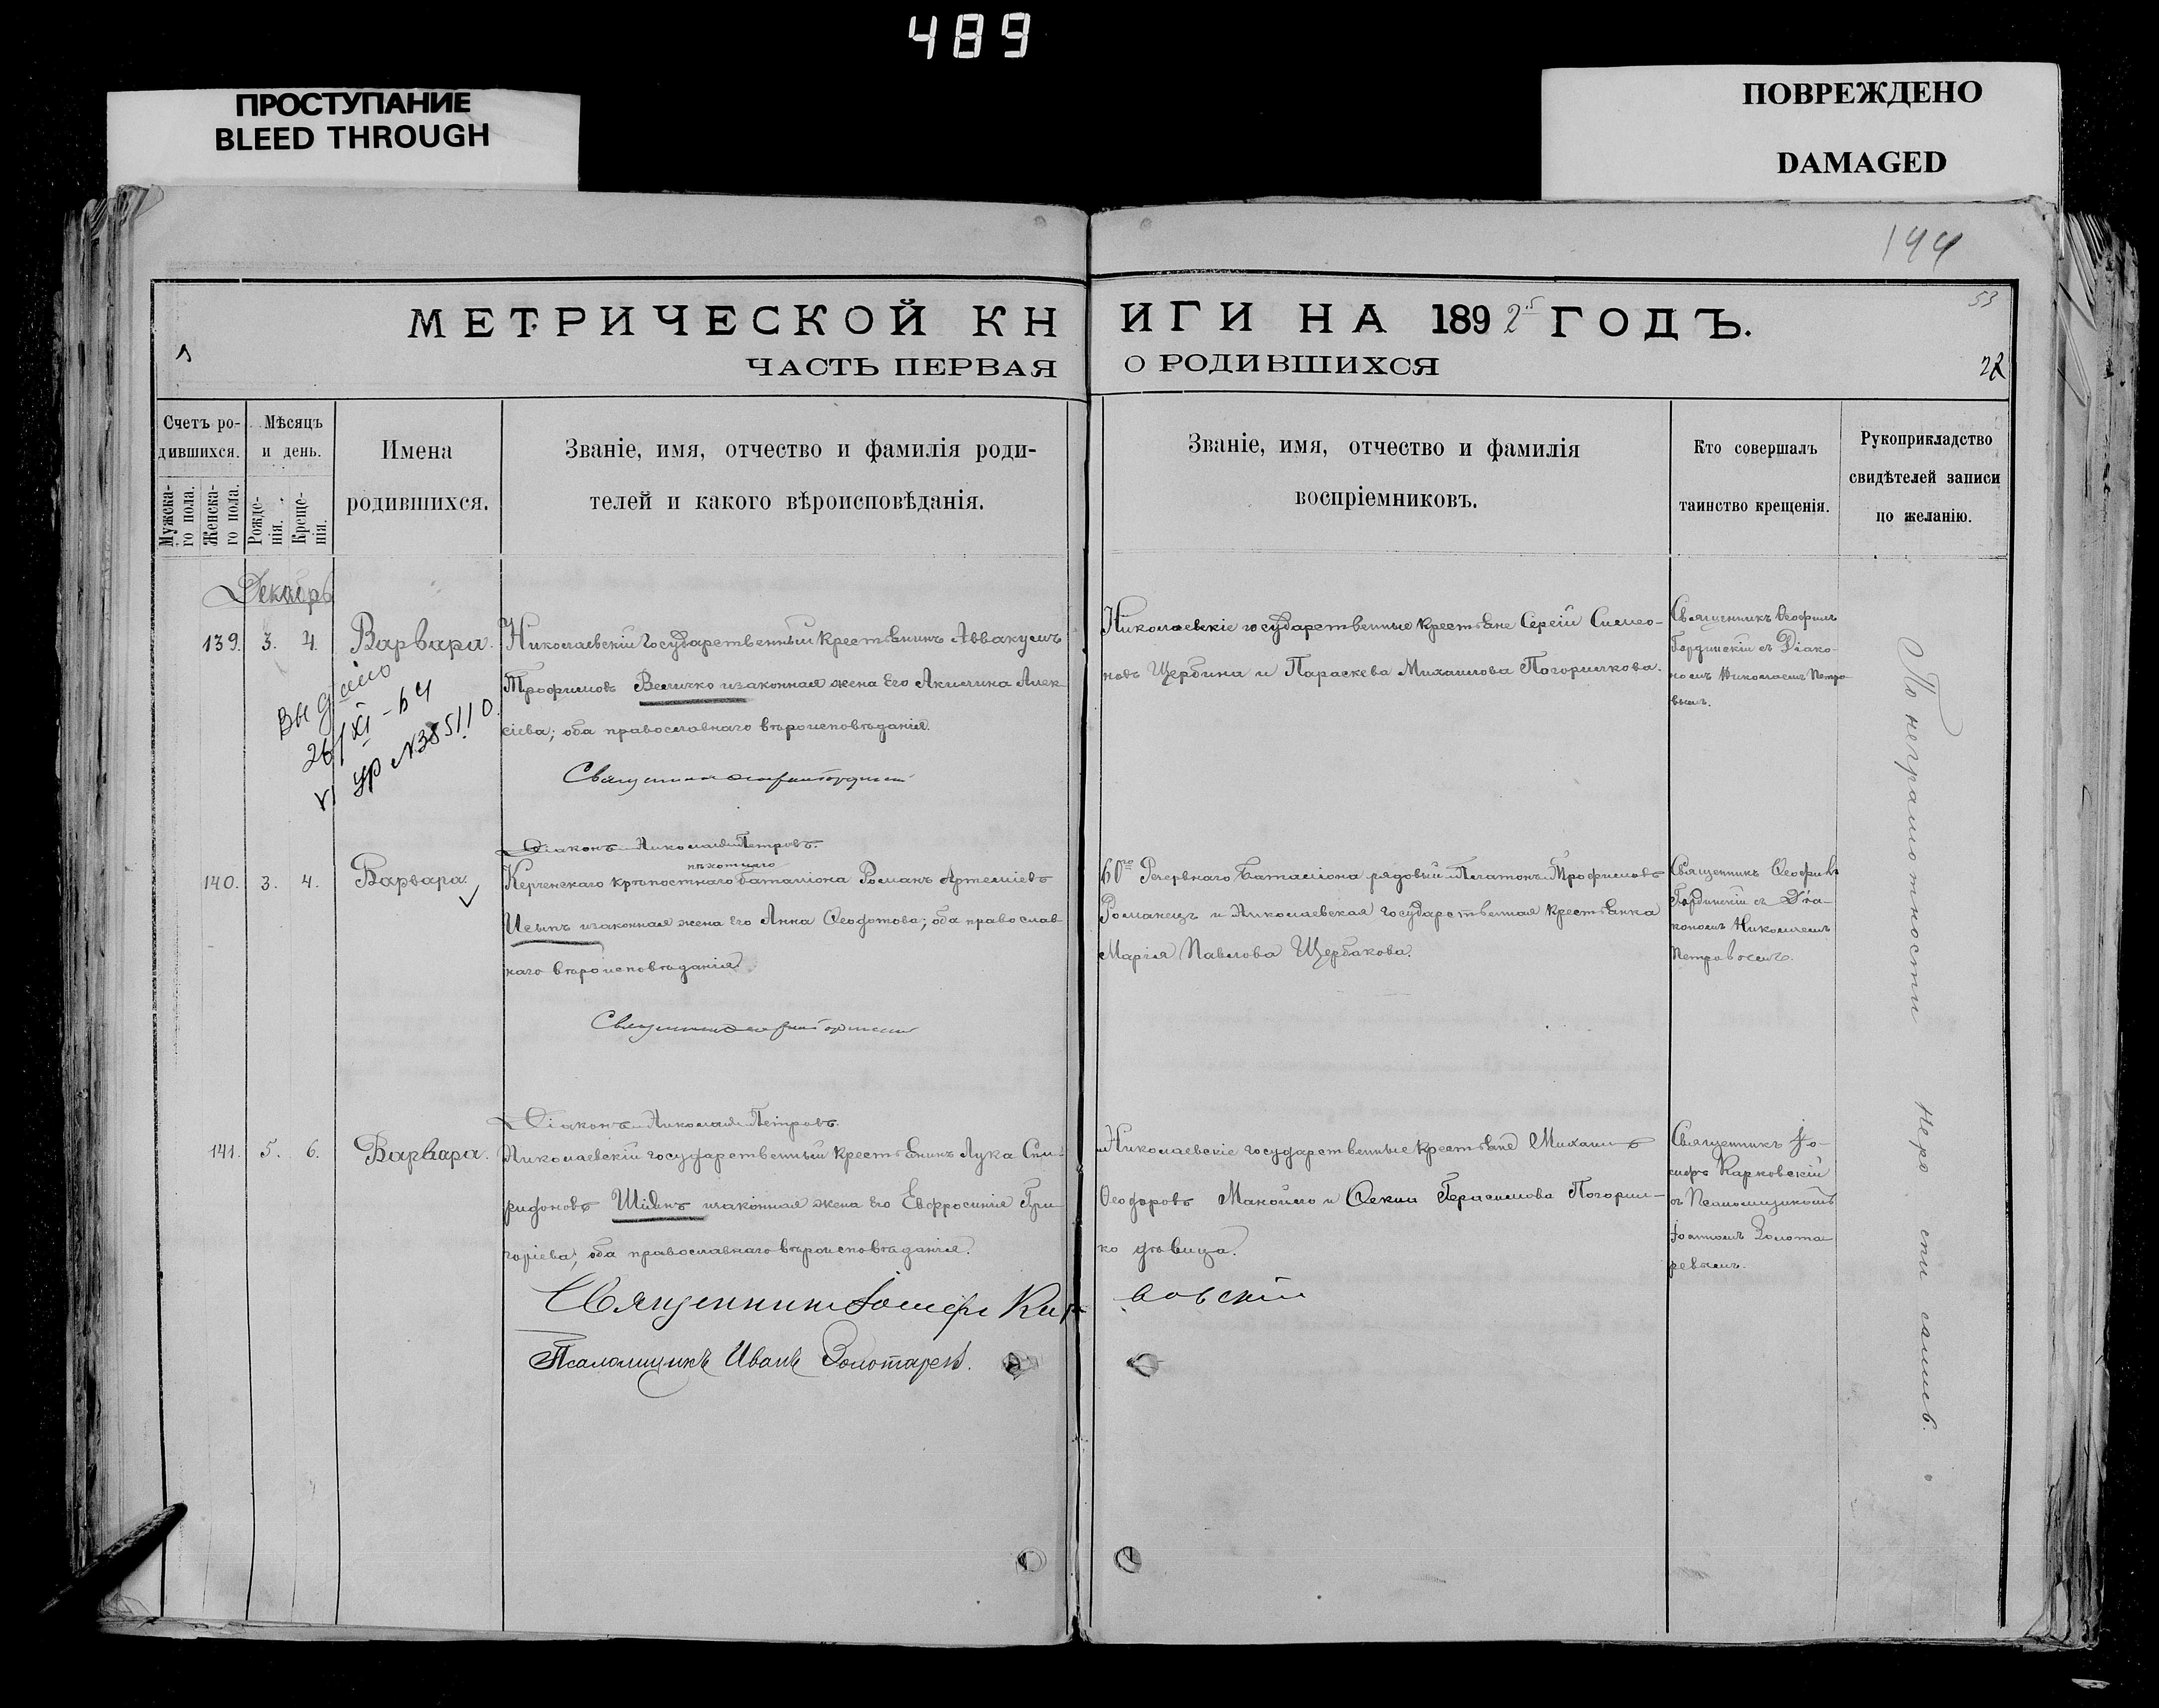 489
ПРОСТУПАНИЕ
BLEED THROUGH
ПОВРЕЖДЕНО
DAMAGED
144
53
МЕТРИЧЕСКОЙ КНИГИ НА 1892 ГОДЪ.
ЧАСТЬ ПЕРВАЯ О РОДИВШИХСЯ
Счетъ ро-
дившихся.
Мужска-
го пола.
Женска-
го пола.
Мѣсяцъ
и день.
Рожде-
нія.
Креще-
нія.
Имена
родившихся.
Званіе, имя, отчество и фамилія роди-
телей и какого вѣроисповѣданія.
Званіе, имя, отчество и фамилія
воспріемниковъ.
Кто совершалъ
таинство крещенія.
Рукоприкладство
свидѣтелей записи
по желанію.
Декабрь
139. 3. 4. Варвара.
Николаевскій государственный крестьянинъ Аввакумъ
Трофимовъ Величко и законная жена его Акилина Алек-
сіева; оба православнаго вѣроисповѣданія.
Діаконъ Николай Петровъ.
Николаевскіе государственные крестьяне Сергій Симео-
новъ Щербина и Параскева Михаилова Погорилкова.
Священникъ Ѳеофилъ
Гординскій съ Діако-
номъ Николаемъ Петро-
вымъ.
Выдано
26/XI-64
140. 3. 4. Варвара.
пѣхотнаго
Керченскаго крѣпостнаго баталіона Романъ Артеміевъ
и законная жена его Анна Ѳеодотова; оба православ-
наго вѣроисповѣданія.
Діаконъ Николай Петровъ.
60го Резервнаго баталіона рядовый Платонъ Трофимовъ
Романецъ и Николаевская государственная крестьянка
Марія Павлова Щербакова.
Священникъ Ѳеофилъ
Гординскій съ Діа-
кономъ Николаемъ
Петровымъ.
141. 5. 6. Варвара.
Николаевскій государственный крестьянинъ Лука Спи-
ридоновъ и законная жена его Евфросинія Гри-
горіева; оба православнаго вѣроисповѣданія.
Николаевскіе государственные крестьяне Михаилъ
Ѳеодоровъ Манойло и Герасимова Погорил-
ко дѣвица.
Священникъ Іо-
сифъ Карковскій
съ Псаломщикомъ
Іоанномъ Золота-
ревымъ.
Священникъ Іосифъ Карковскій
Псаломщикъ Иванъ Золотаревъ.
По неграмотности